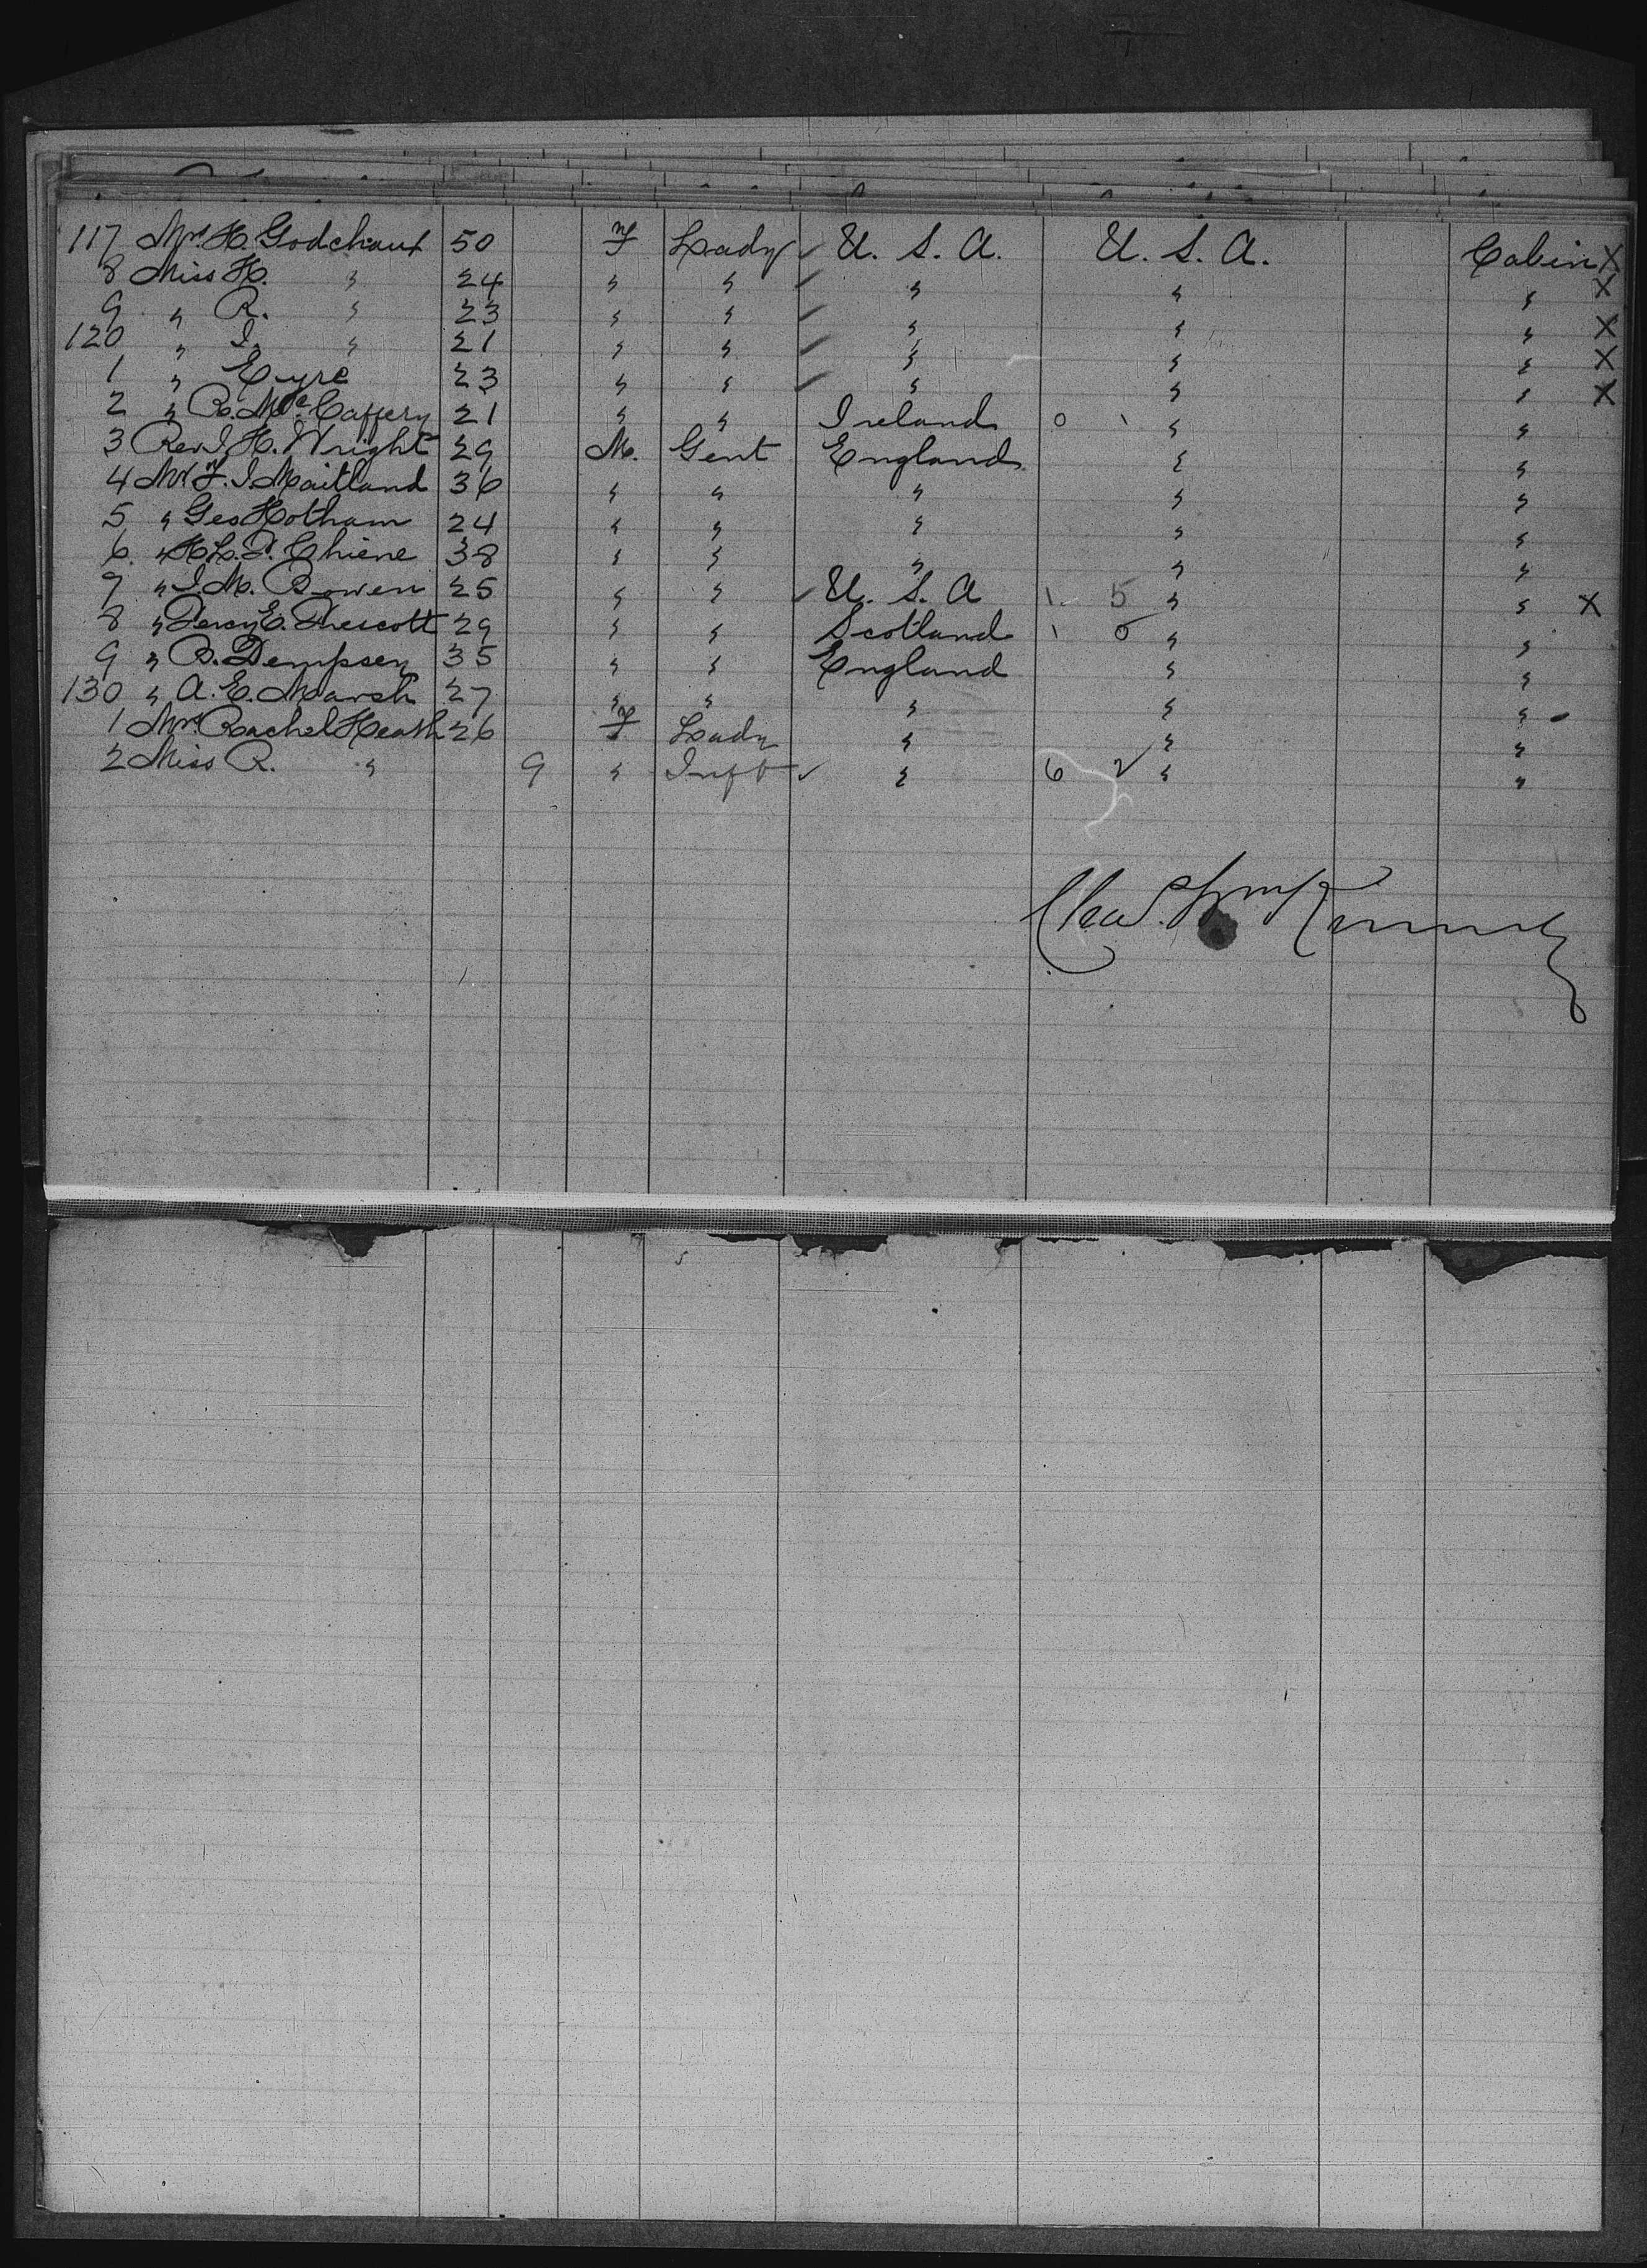 117 Mrs. H. Godchaux 50 F Lady ✓ U. S. A. U. S. A. Cabin X
8 Miss H. " 24 " " ✓ " " " X
9 " R. " 23 " " ✓ " " " X
120 " I. " 21 " " ✓ " " " X
1 " Eyre 23 " " ✓ " " " X
2 " R. McCaffery 21 " " Ireland 0 1 " "
3 Rev J. H. Wright 29 M. Gent England " "
4 Mr F. I Maitland 36 " " " " "
5 " Geo Hotham 24 " " " " "
6 " H. L. P. Chiene 38 " " " " "
7 " J. M. Bowen 25 " " ✓ U. S. A 1 5 " " X
8 " Percy E. Prescott 29 " " Scotland 1 0 " "
9 " B. Dempsey 35 " " England " "
130 " A. E. Marsh 27 " " " " "
1 Mrs Rachel Heath 26 F Lady " " "
2 Miss R. " 9 " Inft ✓ " 6 2 " "